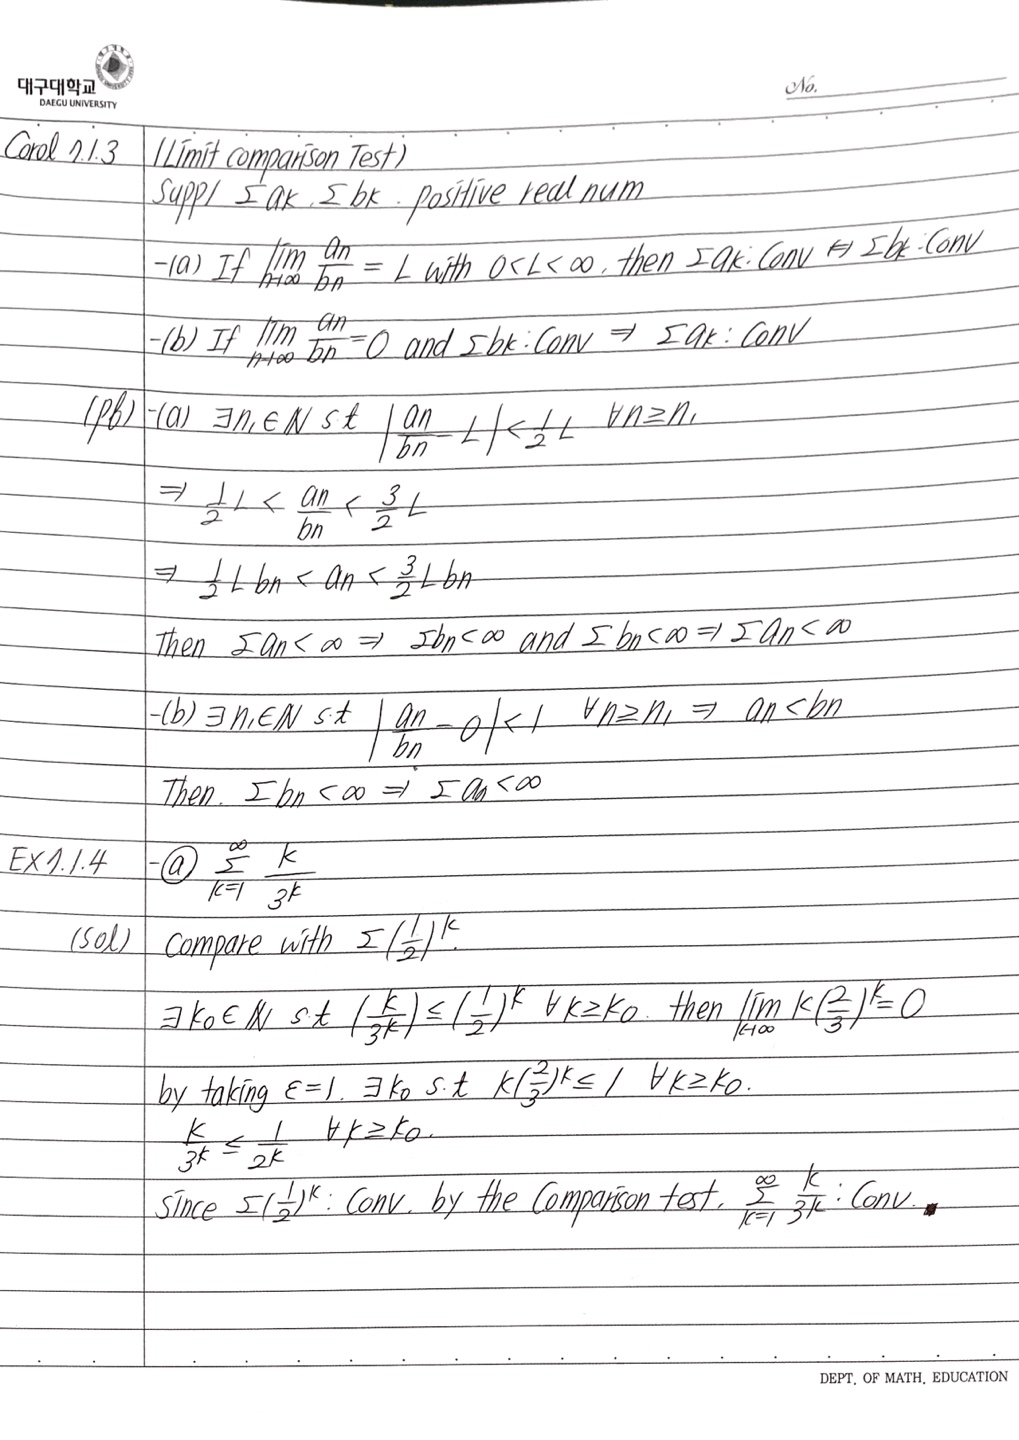 대구대학교
DAEGU UNIVERSITY
No.
Corol 7.1.3 (Limit comparison Test)
Supp/ Σak, Σbk. positive real num
-(a) If lim n→∞ an/bn = L with 0<L<∞, then Σak: Conv ⇔ Σbk: Conv
-(b) If lim n→∞ an/bn = 0 and Σbk: Conv ⇒ Σak: Conv
(pf) -(a) ∃n₁∈N s.t |an/bn - L| < 1/2 L ∀n≥n₁
⇒ 1/2 L < an/bn < 3/2 L
⇒ 1/2 L bn < an < 3/2 L bn
Then Σan<∞ ⇒ Σbn<∞ and Σbn<∞ ⇒ Σan<∞
-(b) ∃n₁∈N s.t |an/bn - 0| < 1 ∀n≥n₁ ⇒ an<bn
Then. Σbn<∞ ⇒ Σan<∞
EX 7.1.4 -ⓐ ∞Σk=1 k/3^k
(Sol) Compare with Σ(1/2)^k.
∃k₀∈N s.t (k/3^k) ≤ (1/2)^k ∀k≥k₀. then lim k→∞ k(2/3)^k = 0
by taking ε=1. ∃k₀ s.t k(2/3)^k ≤ 1 ∀k≥k₀.
k/3^k ≤ 1/2^k ∀k≥k₀.
Since Σ(1/2)^k: Conv. by the Comparison test. ∞Σk=1 k/3^k: Conv.
DEPT. OF MATH. EDUCATION